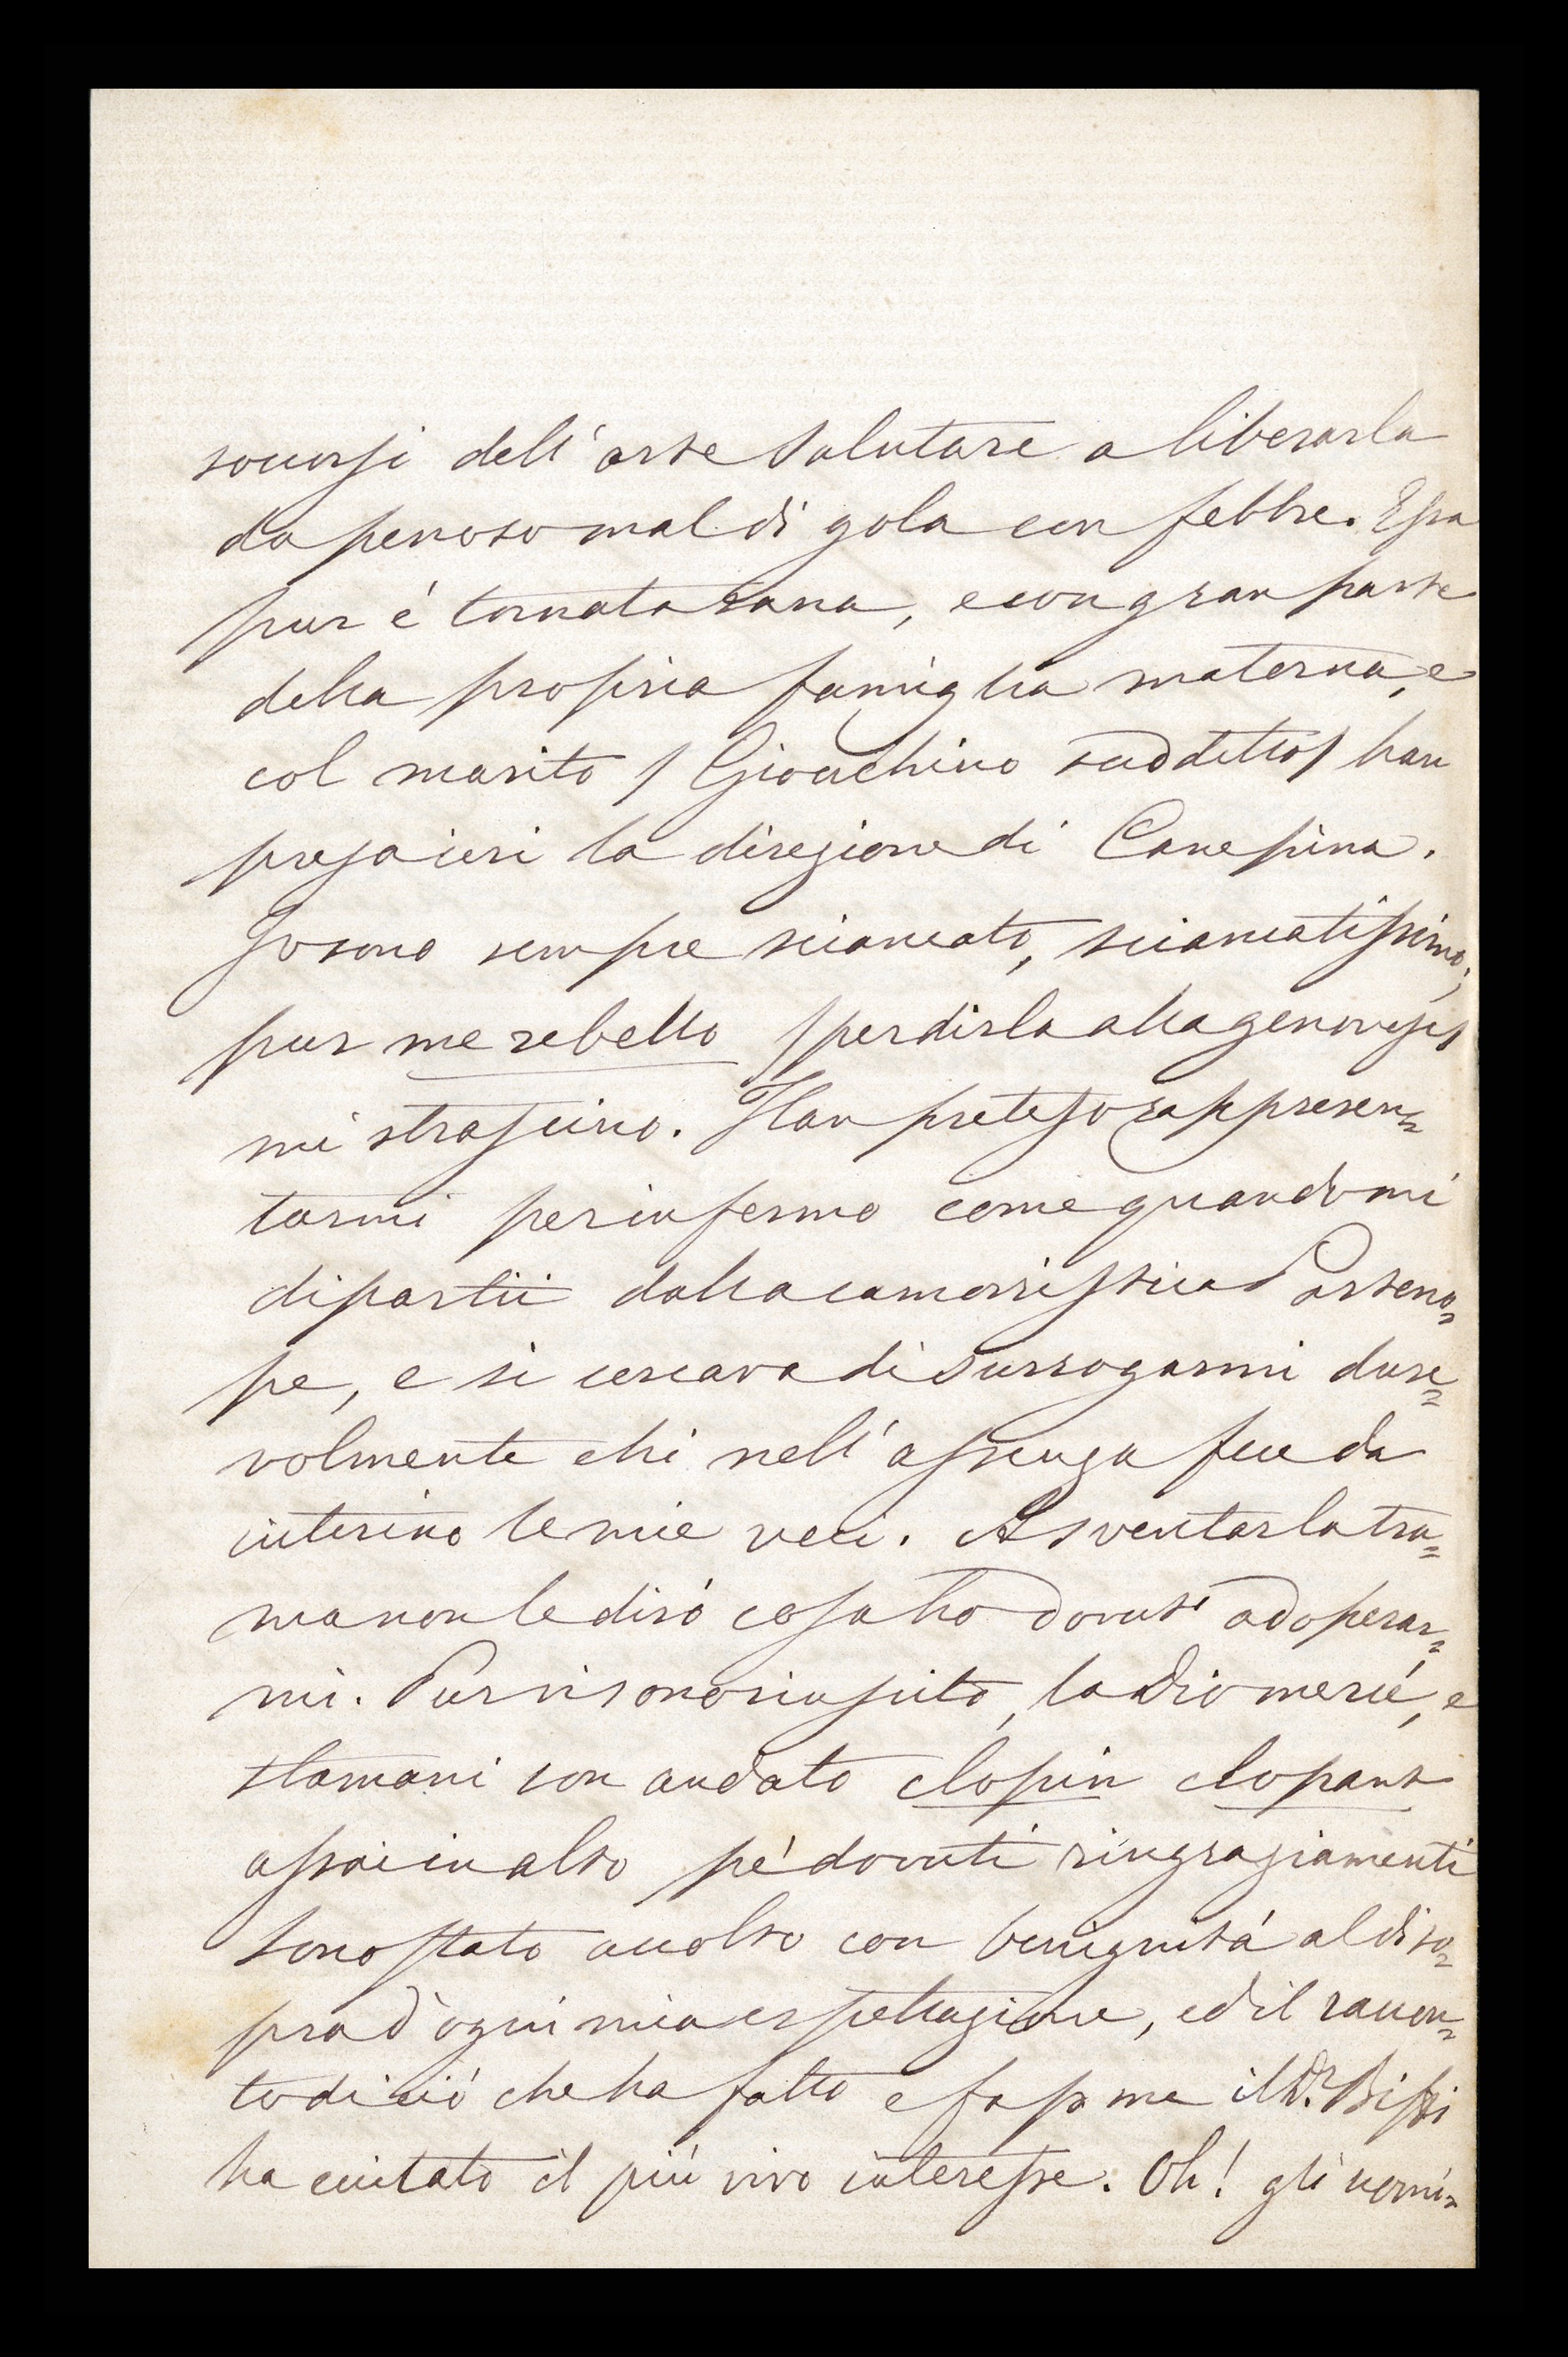 soccorsi dell'arte salutare a liberarla
da penoso mal di gola con febbre. Essa
pur é tornata sana, e con gran parte
della propria famiglia materna, e
col marito / Gioachino suddetto / han
presa ieri la direzione di Canepina.
Io sono sempre sciancato, sciancatissimo;
pur me rebello / per dirla alla genovese /
mi strascino. Han preteso rappresen=
tarmi per infermo come quando mi
dipartii dalla camorristica Parteno=
pe, e si cercava di surrogarmi dure=
volmente chi nell'assenza fece da
interino le mie veci. A sventar la tra=
ma non le diró cosa ho dovuto adoperar=
mi. Pur vi sono riuscito, la Dio mercé, e
stamani son andato clopin clopant
assai in alto pe' dovuti ringraziamenti
Sono stato accolto con benignitá al di so=
pra d'ogni mia espettazione, ed il raccon=
to di ció che ha fatto e fa p me il Dr. Bissi
ha eccitato il piú vivo interesse. Oh! gli uomi=